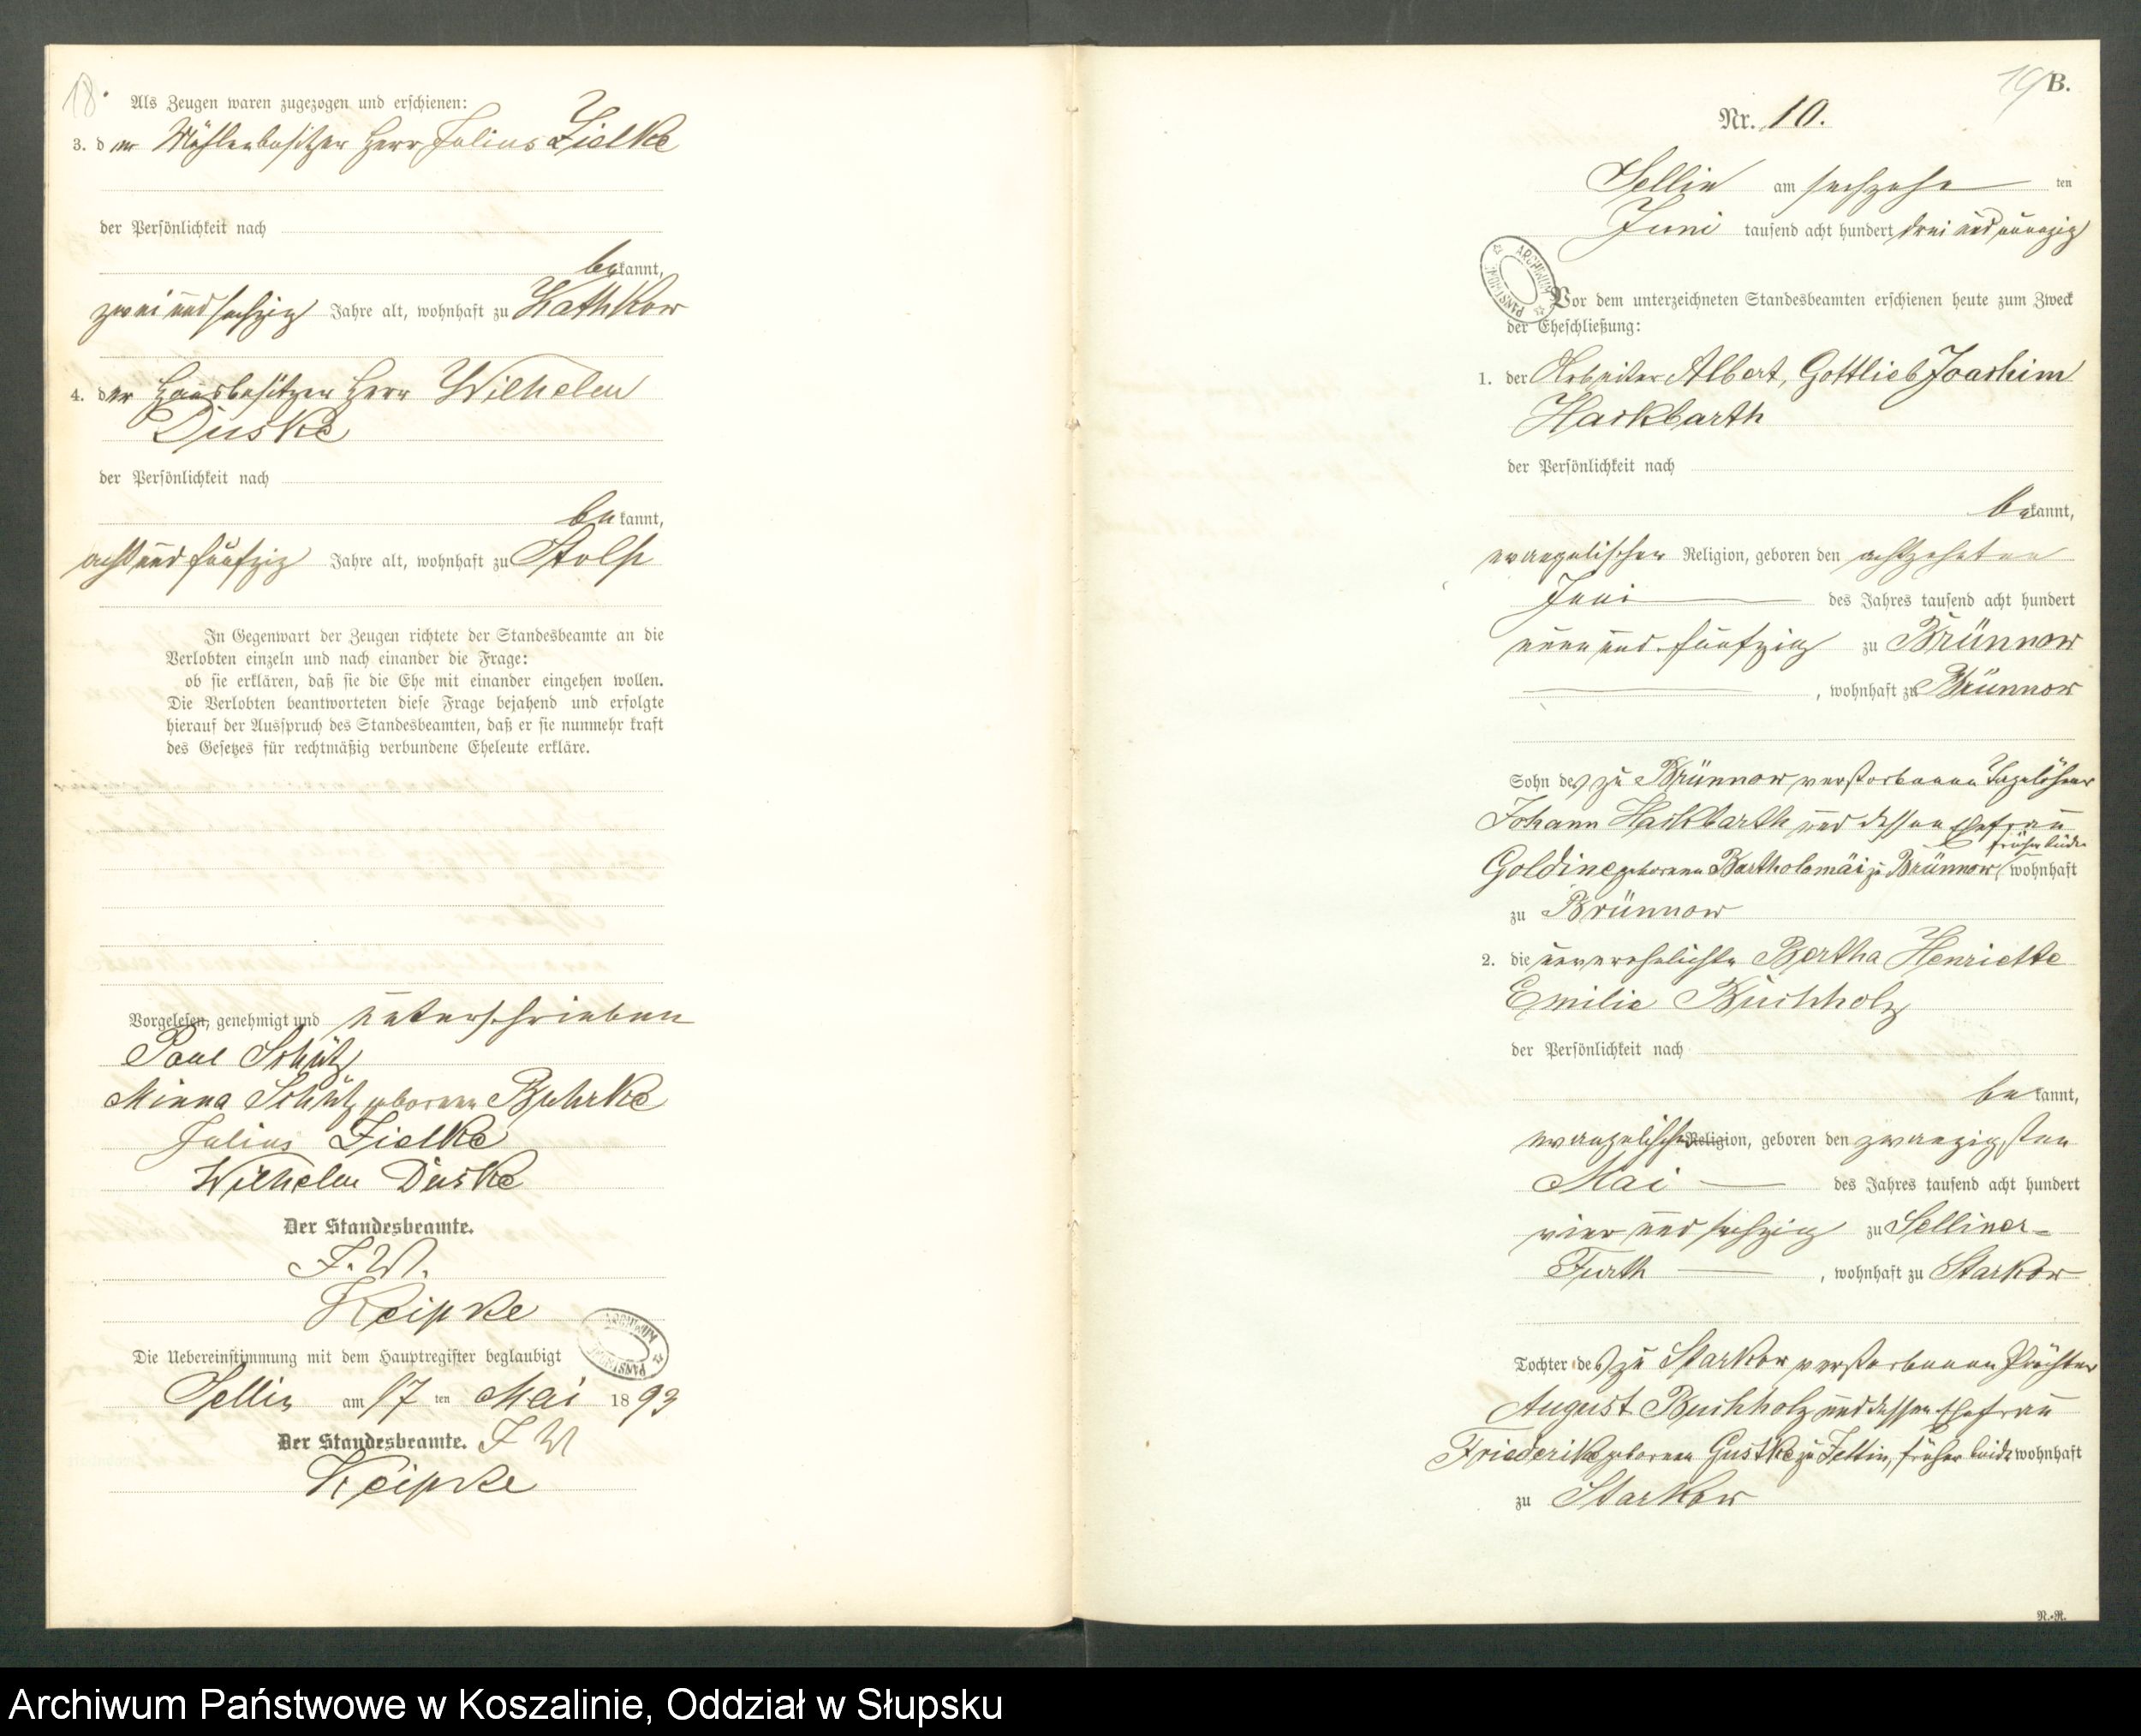 18.
Als Zeugen waren zugezogen und erschienen:
3. der Mühlenbesitzer Herr Julius Zielke
der Persönlichkeit nach
bekannt,
zwei und sechzig Jahre alt, wohnhaft zu Kathkow
4. der Hausbesitzer Herr Wilhelm
Duske
der Persönlichkeit nach
bekannt,
acht und fünfzig Jahre alt, wohnhaft zu Stolp
In Gegenwart der Zeugen richtete der Standesbeamte an die
Verlobten einzeln und nach einander die Frage:
ob sie erklären, daß sie die Ehe mit einander eingehen wollen.
Die Verlobten beantworteten diese Frage bejahend und erfolgte
hierauf der Ausspruch des Standesbeamten, daß er sie nunmehr kraft
des Gesetzes für rechtmäßig verbundene Eheleute erkläre.
Vorgelesen, genehmigt und unterschrieben
Paul Schütz
Minna Schütz geborene Buhrke
Julius Zielke
Wilhelm Duske
Der Standesbeamte.
I. V.
Keipke
Die Uebereinstimmung mit dem Hauptregister beglaubigt
Sellin am 17 ten Mai 1893
Der Standesbeamte. I V
Keipke
ARCHIWUM PAŃSTWOWE
19 B.
Nr. 10.
Sellin am sechzehn ten
Juni tausend acht hundert drei und neunzig
ARCHIWUM PAŃSTWOWE
Vor dem unterzeichneten Standesbeamten erschienen heute zum Zweck
der Eheschließung:
1. der Arbeiter Albert, Gottlieb Joachim
Hackbarth
der Persönlichkeit nach
bekannt,
evangelischer Religion, geboren den achtzehnten
Juni des Jahres tausend acht hundert
neun und fünfzig zu Brünnow
, wohnhaft zu Brünnow
Sohn des zu Brünnow verstorbenen Tagelöhner
Johann Hackbarth und dessen Ehefrau
früher beide
Goldine geborene Bartholomäi zu Brünnow, wohnhaft
zu Brünnow
2. die unverehelichte Bertha Henriette
Emilie Buchholz
der Persönlichkeit nach
bekannt,
evangelischer Religion, geboren den zwanzigsten
Mai des Jahres tausend acht hundert
vier und sechzig zu Selliner-
Furth, wohnhaft zu Starkow
Tochter des zu Starkow verstorbenen Pächter
August Buchholz und dessen Ehefrau
Friederike geborene Gustke zu Sellin, früher beide wohnhaft
zu Starkow
N.-R.
Archiwum Państwowe w Koszalinie, Oddział w Słupsku